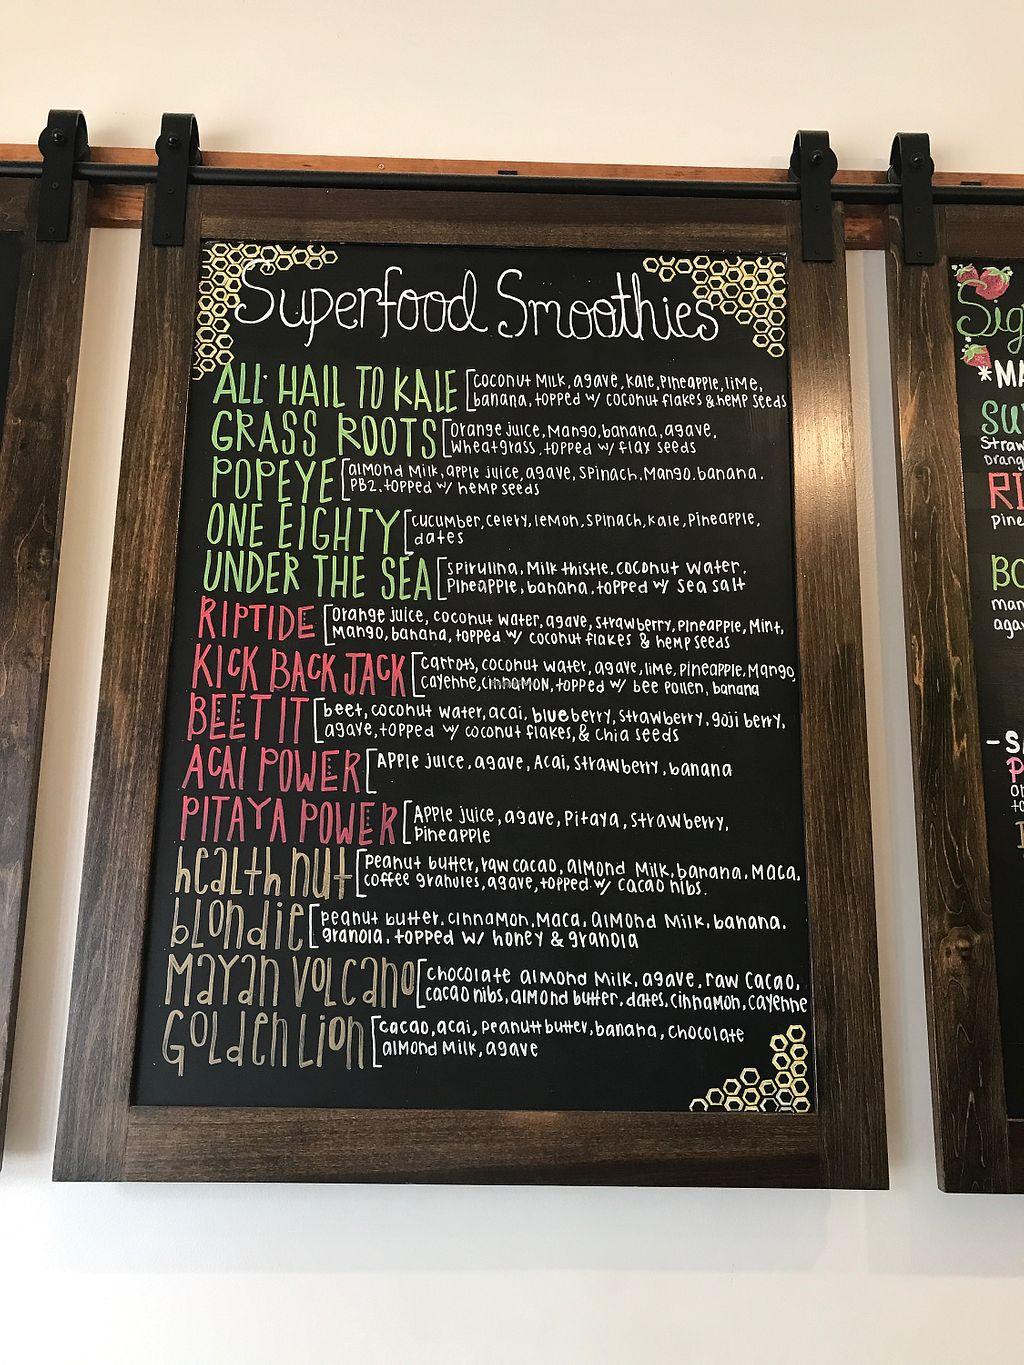 Superfood Smoothies
ALL HAIL TO KALE [coconut Milk, agave, kale, pineapple, lime,
banana, topped w/ coconut flakes & hemp seeds
GRASS ROOTS [orange juice, Mango, banana, agave,
wheatgrass, topped w/ flax seeds
POPEYE [almond Milk, apple juice, agave, spinach, Mango, banana.
PB2, topped w/ hemp seeds
ONE EIGHTY [cucumber, celery, lemon, spinach, kale, pineapple,
dates
UNDER THE SEA [spirulina, Milk thistle, coconut water,
pineapple, banana, topped w/ sea salt
RIPTIDE [orange juice, coconut water, agave, strawberry, pineapple, Mint,
Mango, banana, topped w/ coconut flakes & hemp seeds
KICK BACK JACK [carrots, coconut water, agave, lime, pineapple, Mango,
cayenne, cinnamon, topped w/ bee pollen, banana
BEET IT [beet, coconut water, acai, blueberry, strawberry, goji berry,
agave, topped w/ coconut flakes, & chia seeds
ACAI POWER [Apple juice, agave, Acai, strawberry, banana
PITAYA POWER [Apple juice, agave, Pitaya, strawberry,
pineapple
health nut [peanut butter, raw cacao, almond Milk, banana, Maca,
coffee granules, agave, topped w/ cacao nibs.
blondie [peanut butter, cinnamon, Maca, almond Milk, banana.
granola, topped w/ honey & granola
Mayan volcano [chocolate almond Milk, agave, raw cacao,
cacao nibs, almond butter, dates, cinnamon, cayenne
Golden Lion [cacao, acai, peanutt butter, banana, chocolate
almond Milk, agave